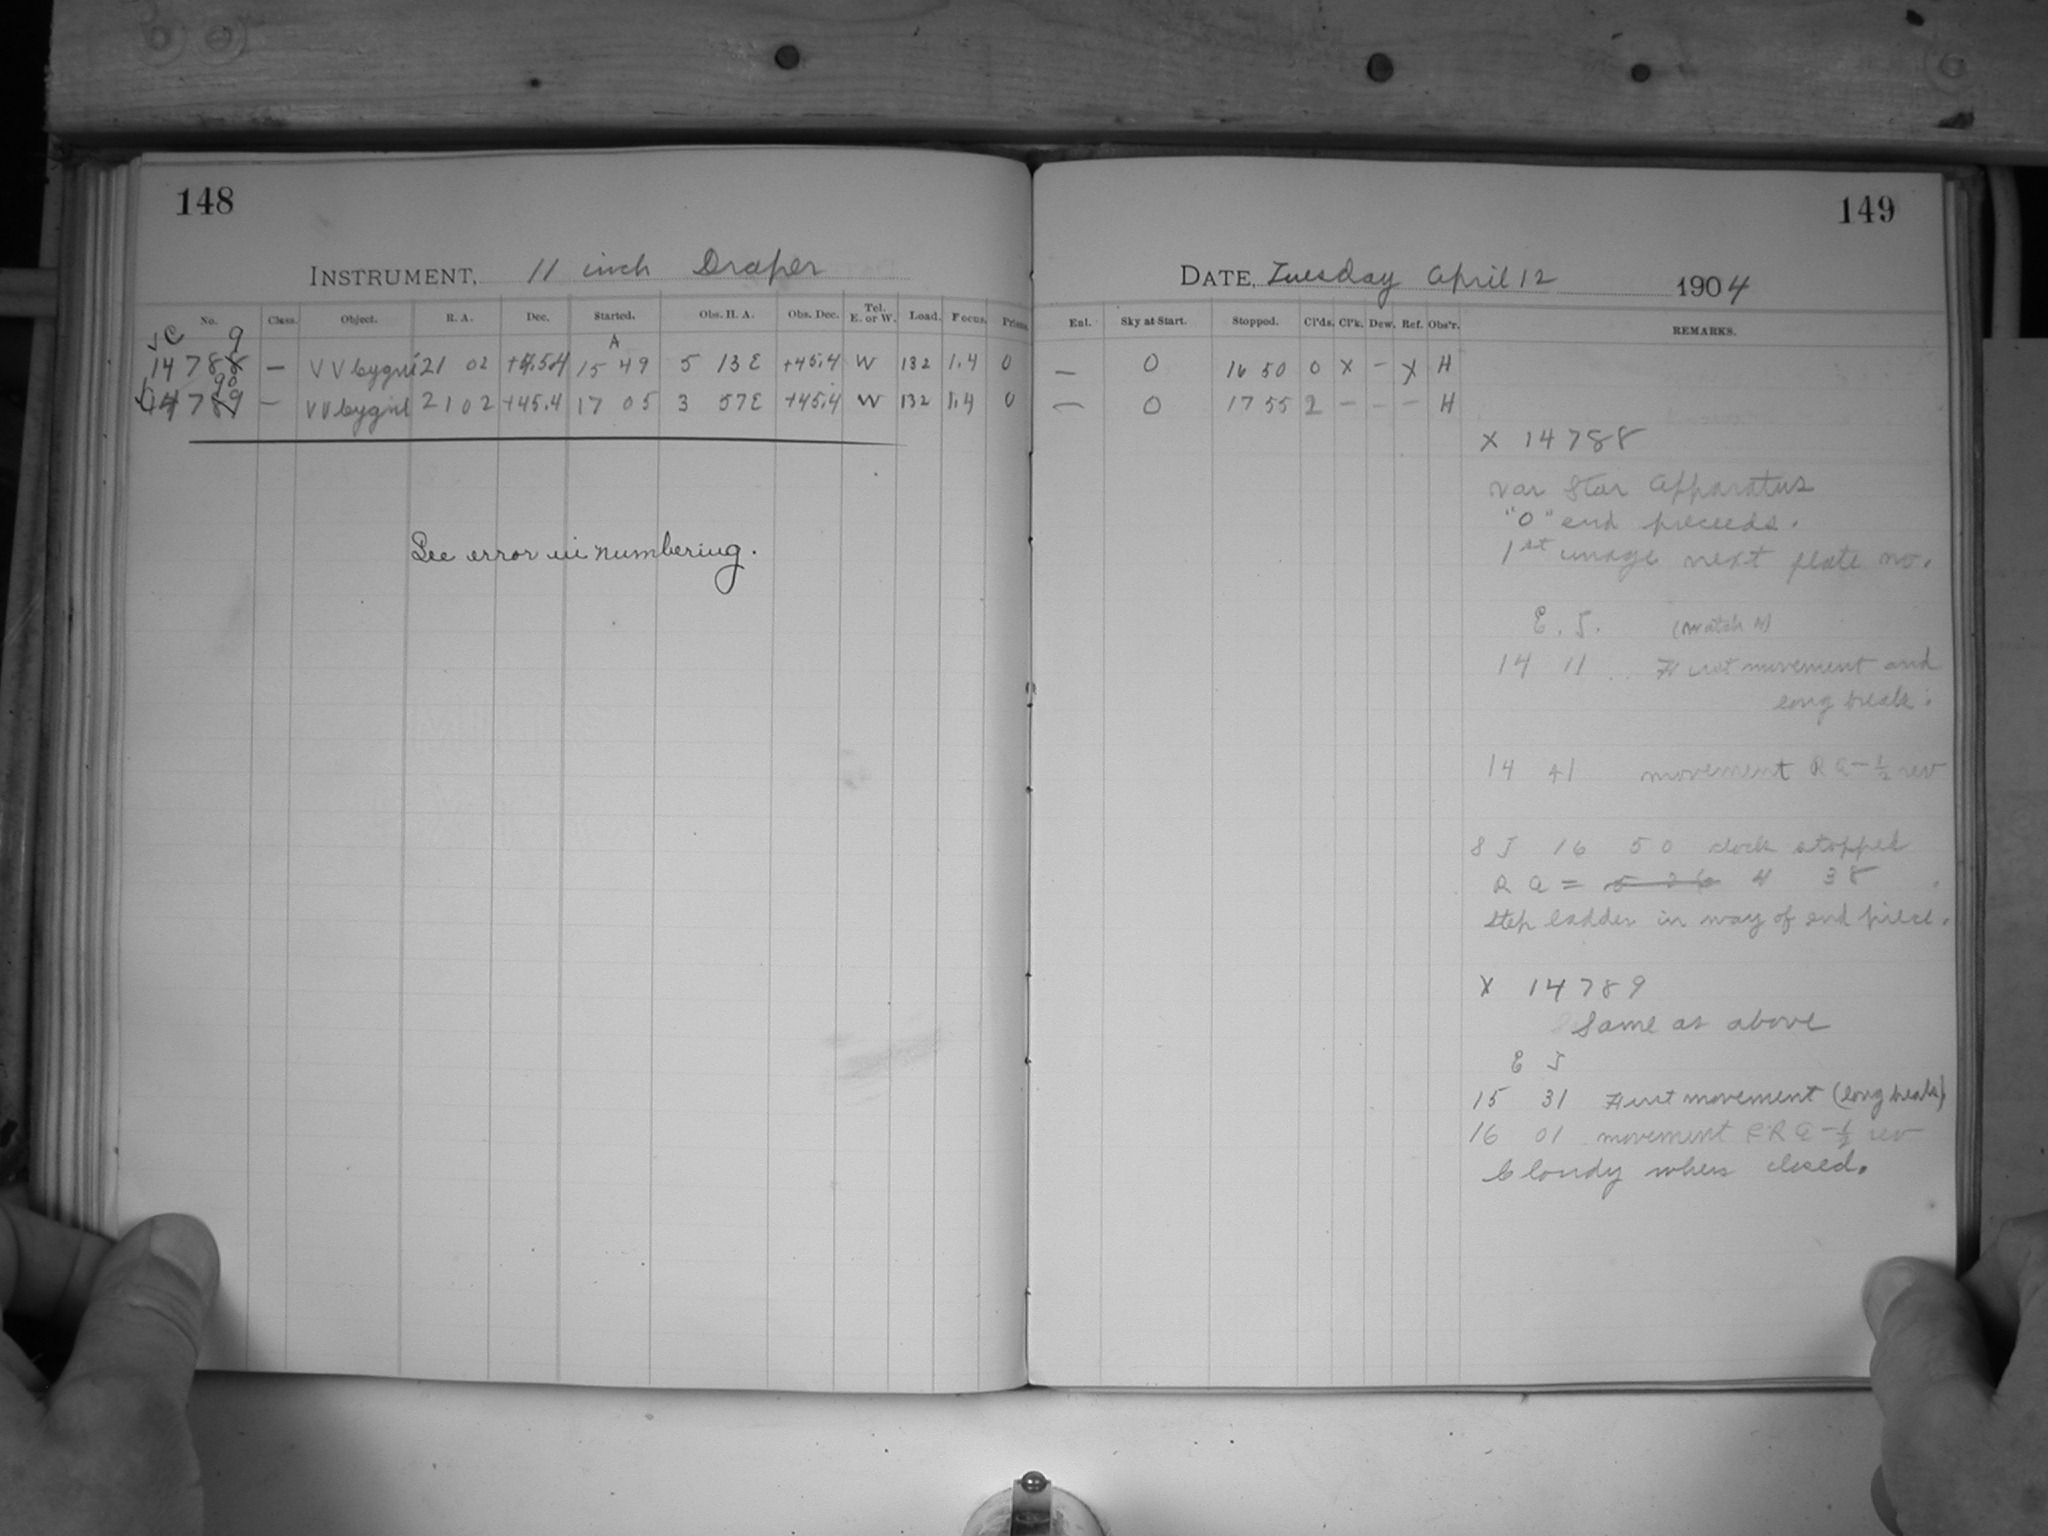 148
149
INSTRUMENT, 11 inch Draper
DATE, Tuesday April 12 1904
No. Class. Object. R. A. Dec. Started. Obs. H. A. Obs. Dec. Tel. E. or W. Load. Focus. Prisms.
Enl. Sky at Start. Stopped. Cl'ds. Cl'k. Dew. Ref. Obs'r. REMARKS.
C 9 A
14788 — VV Cygni 21 02 +45.4 15 49 5 13 E +45.4 W 132 1.4 0 — 0 16 50 0 X – X H
90
14789 — VV Cygni 21 02 +45.4 17 05 3 57 E +45.4 W 132 1.4 0 — 0 17 55 2 – – – H
See error in numbering.
X 14788
Var Star Apparatus
"0" end preceeds.
1st image next plate no.
E. J. (Watch H)
14 11 .. First movement and
long break.
14 41 movement R a – ½ rev
S J 16 50 clock stopped
R a = 5 26 4 38
step ladder in way of end piece.
X 14789
Same as above
E J
15 31 First movement (long break)
16 01 movement R a – ½ rev
Cloudy when closed.